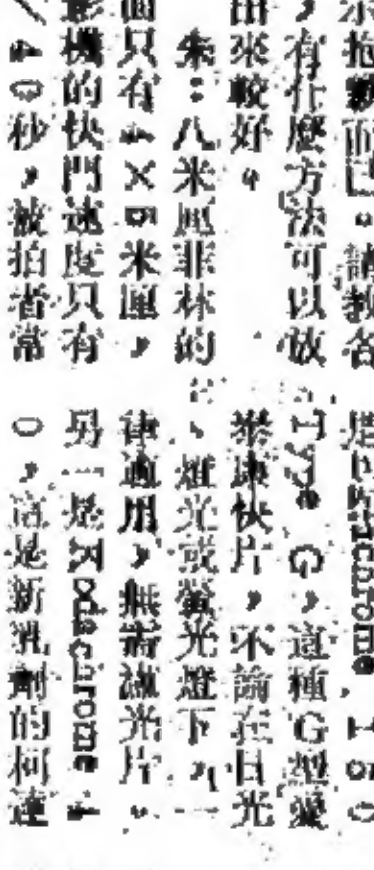 示抱歉而已。請教各
,有什麼方法可以放
出來較好。
朱:八米厘菲林的
面只有 × 米厘,
影機的快門速度只有
/40秒,被拍者常
是Ektachrome 160
Type G,這種G型愛
泰康快片,不論在日光
、燈光或螢光燈下,一
律適用,無需濾光片。
另一是Kodachrome 4
0,這是新乳劑的柯達